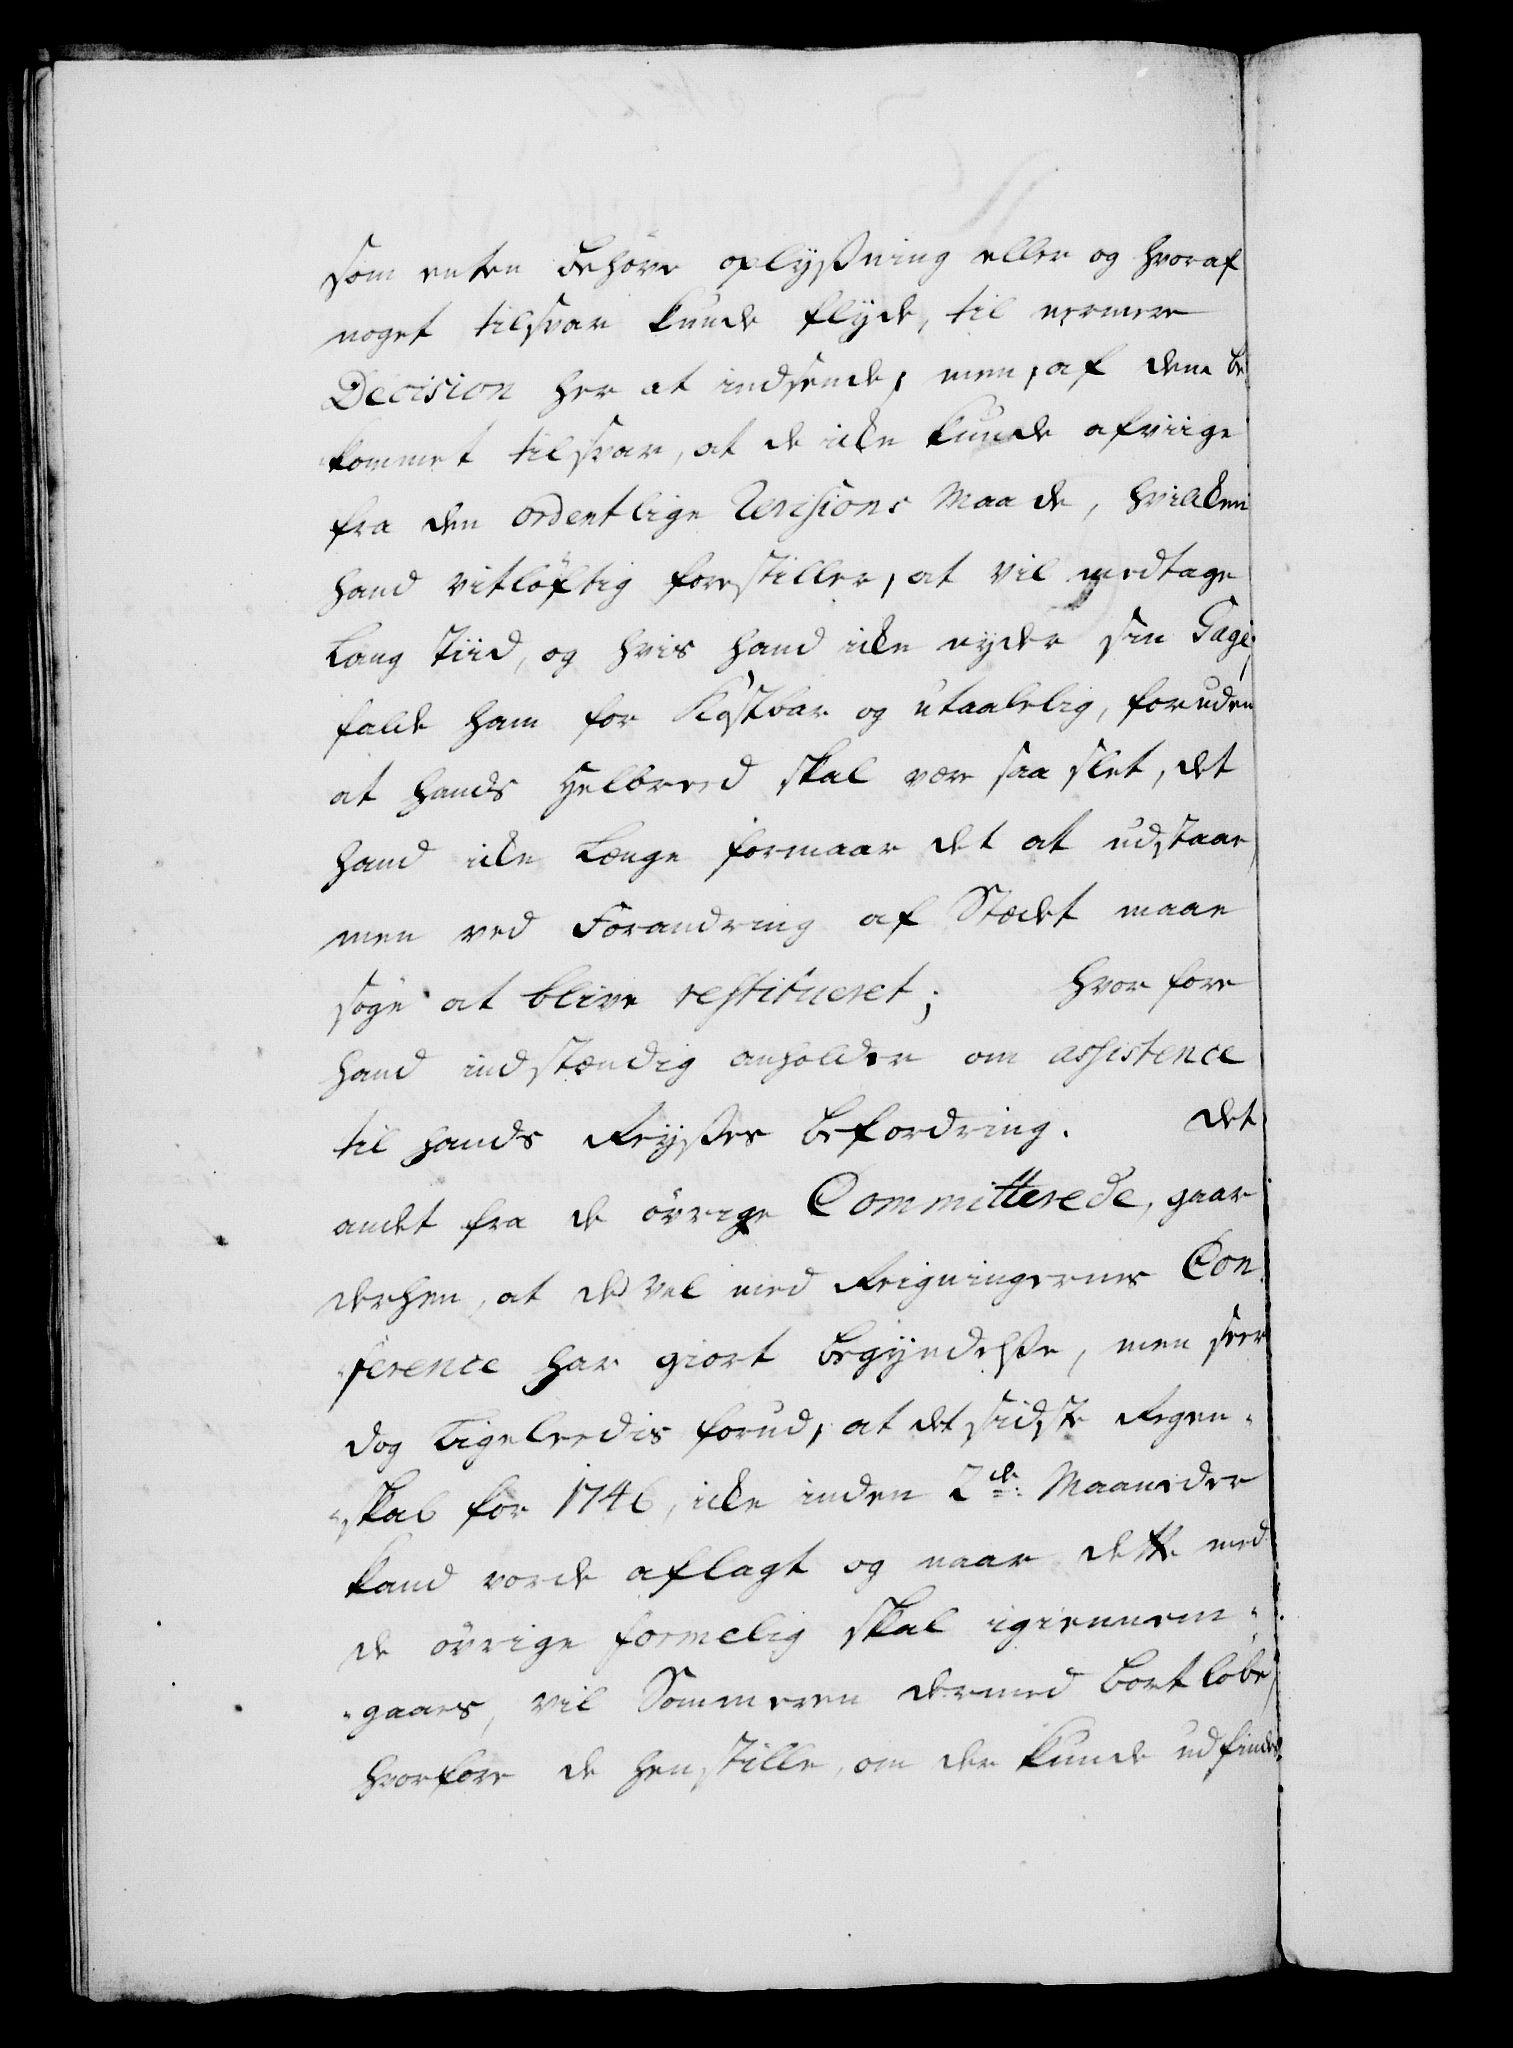 som enten behøve oplysning eller og hvoraf
noget tilsvar kunde flyde, til nermere
Decision her at indsende, men, af dem be
kommet tilsvar, at de icke kunde afviige
fra den ordentlige Revisions Maade, hvilcken
hand vitløftig forestiller, at vil medtage
Lang Tiid, og hvis hand icke nyder sin Gage,
falde ham for Kostbar og utaalelig, foruden
at hands Helbreed skal være saa slet, det
hand icke Længe formaar det at udstaae,
men ved Forandring af Stædet maae
søge at blive restitueret; hvorfore
hand indstændig anholder om assistence
til hands Reyses befordring. det
andet fra de øvrige Committerede, gaar
derhen, at de vel med Reigningernes Con
"ference har giort begyndelse, men seer
dog Ligeleedis forud, at det sidste Regen"
"skab for 1746, icke inden 2de: Maaneder
kand vorde aflagt og naar dette med
de øvrige formelig skal igiennem"
"gaaes, vil Sommeren dermed bortløbe,
hvorfore de henstille, om der kunde udfindes